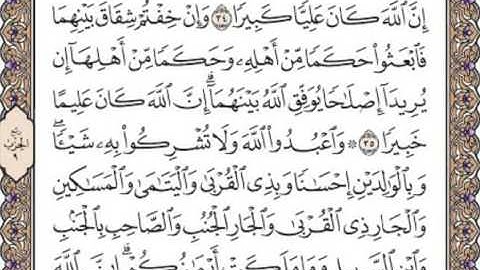 إِنَّ اللَّهَ كَانَ عَلِيًّا كَبِيرًا ۝٣٤ وَإِنْ خِفْتُمْ شِقَاقَ بَيْنِهِمَا
فَابْعَثُوا۟ حَكَمًا مِّنْ أَهْلِهِۦ وَحَكَمًا مِّنْ أَهْلِهَآ إِن
يُرِيدَآ إِصْلَٰحًا يُوَفِّقِ اللَّهُ بَيْنَهُمَآ ۗ إِنَّ اللَّهَ كَانَ عَلِيمًا
خَبِيرًا ۝٣٥ ۞ وَاعْبُدُوا۟ اللَّهَ وَلَا تُشْرِكُوا۟ بِهِۦ شَيْـًٔا ۖ
وَبِالْوَٰلِدَيْنِ إِحْسَٰنًا وَبِذِى الْقُرْبَىٰ وَالْيَتَٰمَىٰ وَالْمَسَٰكِينِ
وَالْجَارِ ذِى الْقُرْبَىٰ وَالْجَارِ الْجُنُبِ وَالصَّاحِبِ بِالْجَنۢبِ
وَابْنِ السَّبِيلِ وَمَا مَلَكَتْ أَيْمَٰنُكُمْ ۗ إِنَّ اللَّهَ
ربع
الحزب
٩